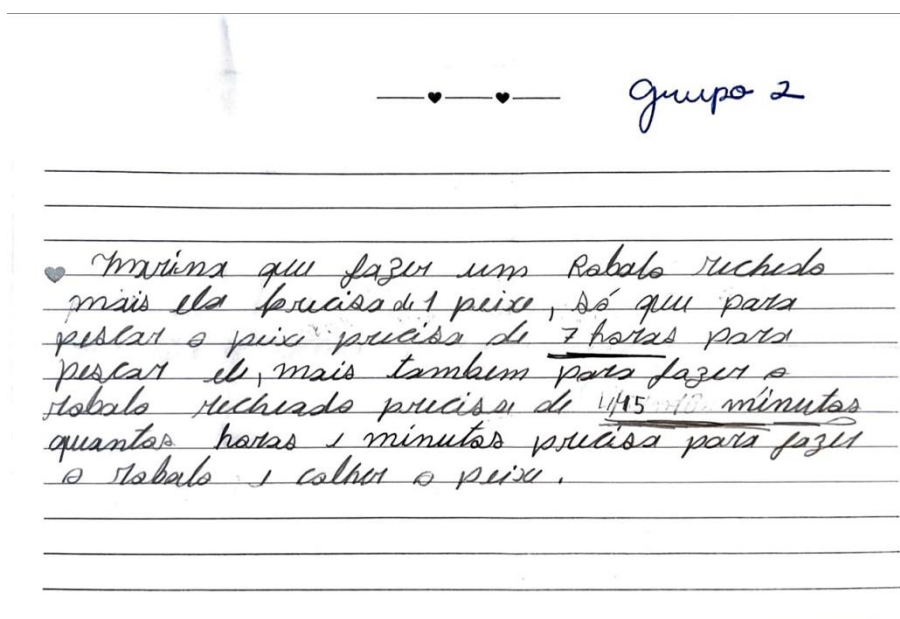 Grupo 2
Marina que fazer um Robalo recheado
mais ela precisa de 1 peixe, só que para
pescar o peixe precisa de 7 horas para
pescar ele, mais tambem para fazer o
robalo recheado precisa de 45 minutos
quantas horas e minutos precisa para fazer
o robalo e colher o peixe.